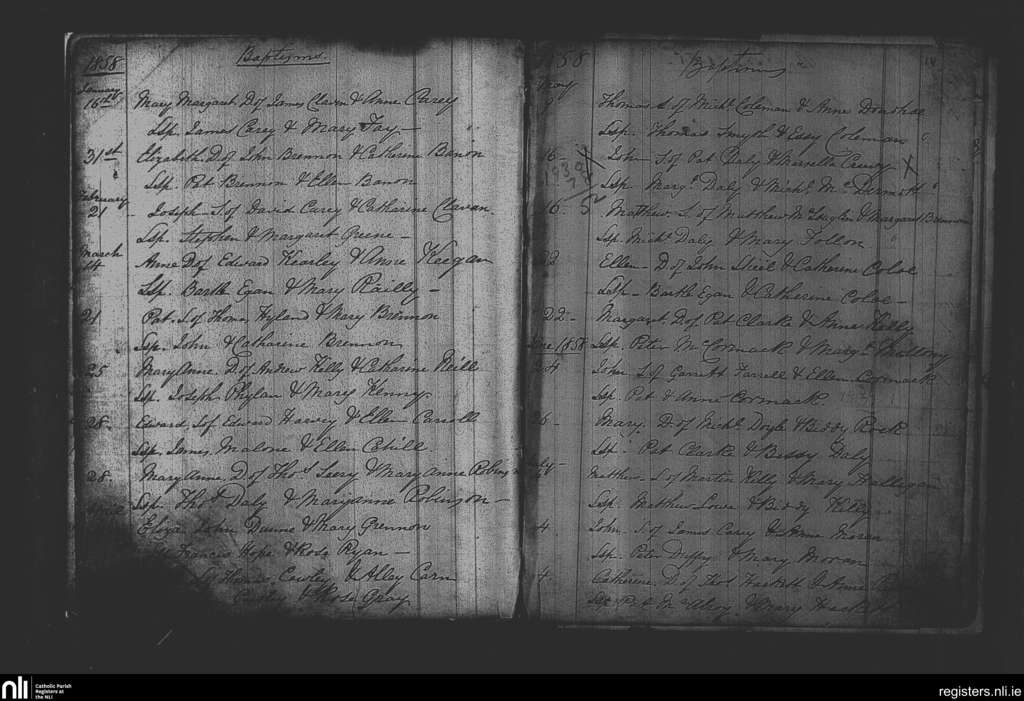 1858
Baptisms.
January
16th Mary Margaret D. of James Claven & Anne Carey
Ssp. James Carey & Mary Fay. —
31st Elizabeth D. of John Brennon & Catherine Banon
Ssp. Pat Brennon & Ellen Banon
February
21 Joseph S. of David Carey & Catharine Clavan
Ssp. Stephen & Margaret Greene —
March
14 Anne D. of Edward Kearley & Anne Keegan
Ssp. Bartle Egan & Mary Railly —
21 Pat. S. of Thomas Hyland & Mary Brennon
Ssp. John & Catharine Brennon
25 Mary Anne D. of Andrew Kelly & Catharine Neill
Ssp. Joseph Phylan & Mary Kenny
28 Edward S. of Edward Harvey & Ellen Carroll
Ssp. James Malone & Ellen Cahill
28. Mary Anne D. of Thos. Leery & Mary Anne
Ssp. Thos. Daly & Maryanne Robinson —
Eliza John & Mary Grennon
Francis Hope & Rose Ryan —
Thomas & Alley Carn
& Rose Gray
1858
Baptisms
May
9 Thomas S. of Michl. Coleman & Anne Donohoe
Ssp. Thomas Smyth & Essy Coleman
16 John S. of Pat Daly & Marcella X
Ssp. Margt. Daly & Michl. McDermott
16. Matthew S. of Matthew & Margaret Brennon
Ssp. Michl. Daly & Mary Follon
Ellen D. of John & Catherine Coloe
Ssp — Bartle Egan & Catherine Coloe —
22 Margaret D. of Pat Clarke & Anne Kelly
June 1858 Ssp. Peter McCormack & Margt.
24 John S. of Garrett Farrell & Ellen Cormack
Ssp. Pat & Anne Cormack
Mary D. of Michl. Doyle & Biddy Rock
Ssp. Pat Clarke & Bessy Daly
July Matthew S. of Martin Kelly & Mary Halligan
Ssp. Matthew Lowe & Biddy
4. John S. of James Carey & Anne Moran
Ssp. Peter Duffy & Mary Moran
4. Catherine D. of Thos. & Anne
Ssp. & Mary
nli Catholic Parish
Registers at
the NLI
registers.nli.ie